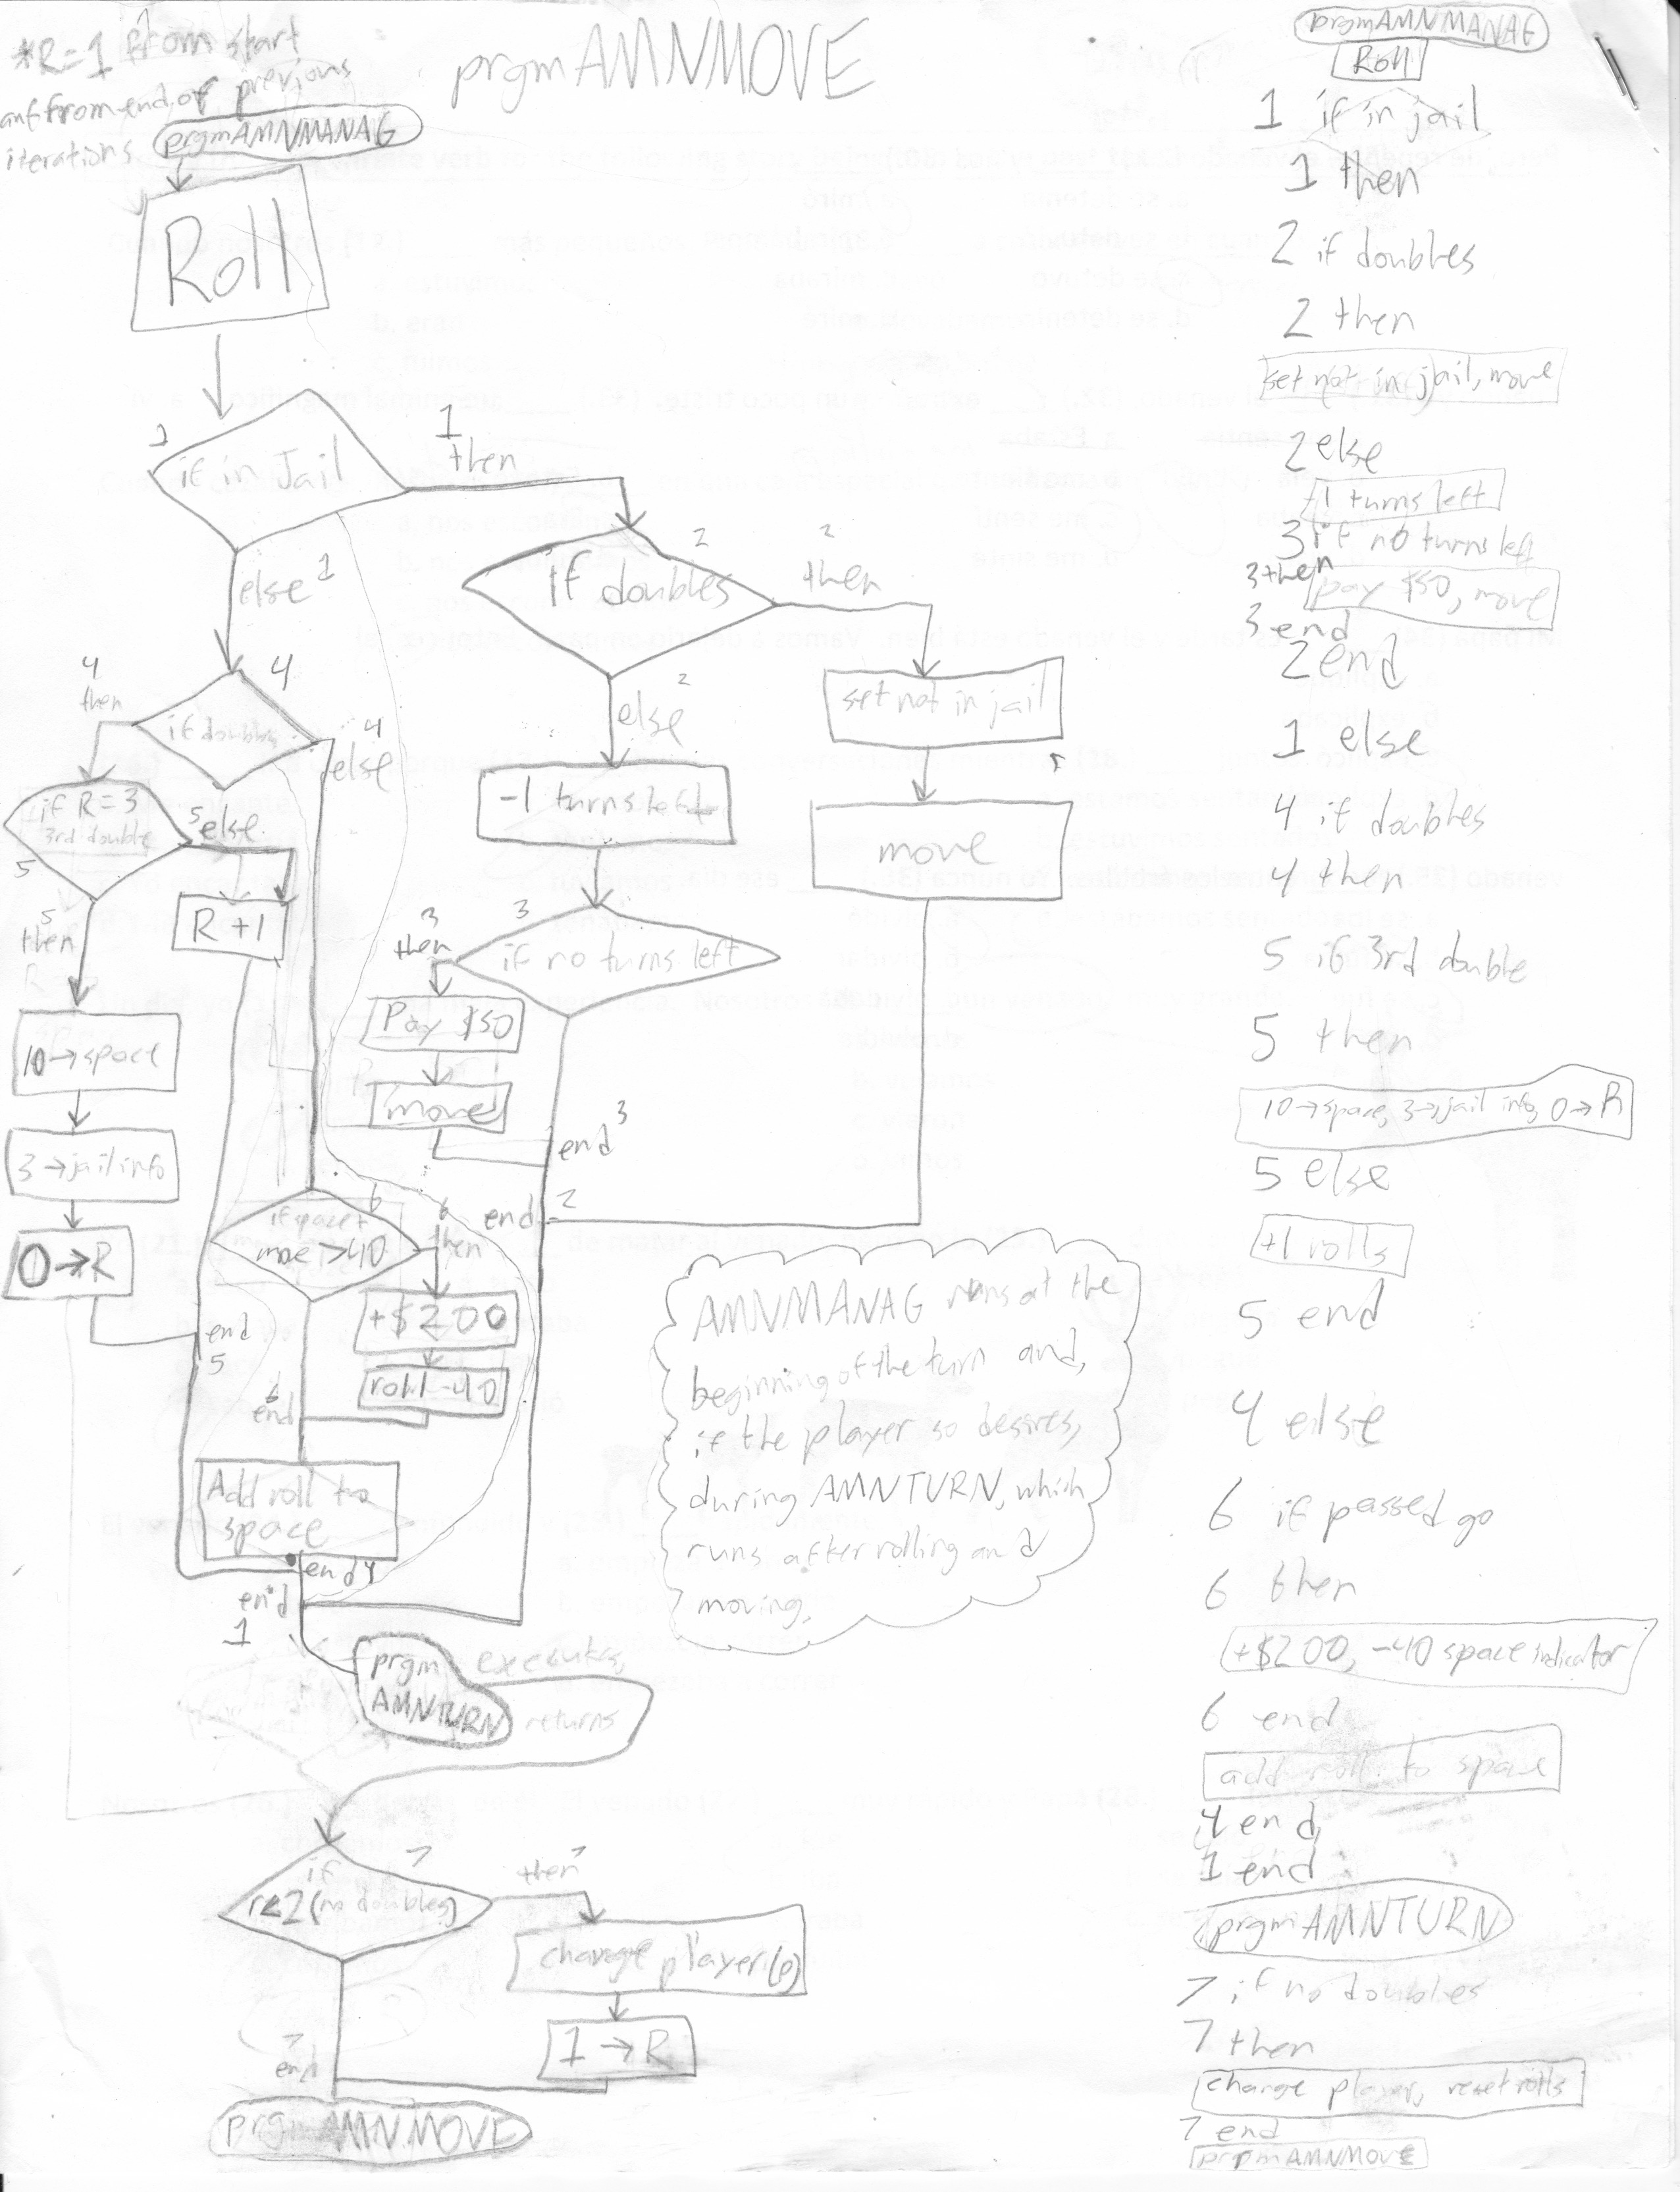 *R=1 from start
and from end of previous
iterations
prgmAMNMOVE
prgmAMNMANAG
Roll
1
if in Jail
1
then
else 1
2
if doubles
2
then
set not in jail
move
2
else
-1 turns left
3
if no turns left
3
then
Pay $50
move
end 3
end 2
4
if doubles
4
then
4
else
if R=3
3rd double
5
5 else
R+1
5
then
10→space
3→jail info
0→R
end
5
6
if space+
move>40
6
then
+$200
roll-40
6
end
Add roll to
space
end 4
end
1
prgm
AMNTURN
executes,
returns
7
if
r<2(no doubles)
then 7
change player(p)
1→R
7
end
prgmAMNMOVE
AMNMANAG runs at the
beginning of the turn and,
if the player so desires,
during AMNTURN, which
runs after rolling and
moving.
prgmAMNMANAG
Roll
1 if in jail
1 then
2 if doubles
2 then
set not in jail, move
2 else
-1 turns left
3 if no turns left
3 then
pay $50, move
3 end
2 end
1 else
4 if doubles
4 then
5 if 3rd double
5 then
10→space, 3→jail info, 0→R
5 else
+1 rolls
5 end
4 else
6 if passed go
6 then
+$200, -40 space indicator
6 end
add roll to space
4 end
1 end
prgmAMNTURN
7 if no doubles
7 then
change player, reset rolls
7 end
prgmAMNMOVE